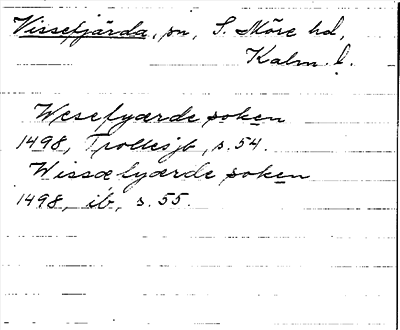 Vissefjärda, sn, S. Möre hd,
Kalm. l.
Wesefyærde soken
1498, Trollesjb, s. 54.
Wissæfyærde soken
1498, ib, s. 55.